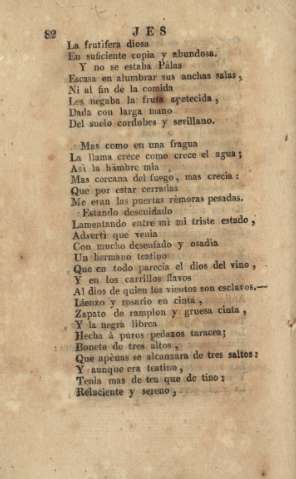 82 JES
La frutifera diosa
En suficiente copia y abundosa.
Y no se estaba Pálas
Escasa en alumbrar sus anchas salas,
Ni al fin de la comida
Les negaba la fruta apetecida,
Dada con larga mano
Del suelo cordobes y sevillano.
Mas como en una fragua
La llama crece como crece el agua;
Asi la hambre mia
Mas cercana del fuego, mas crecia:
Que por estar cerradas
Me eran las puertas rémoras pesadas.
Estando descuidado
Lamentando entre mi mi triste estado,
Advertí que venia
Con mucho desenfado y osadia
Un hermano teatino
Que en todo parecia el dios del vino,
Y en los carrillos flavos
Al dios de quien los vientos son esclavos.—
Lienzo y rosario en cinta,
Zapato de ramplon y gruesa cinta,
Y la negra librea
Hecha á puros pedazos taracea;
Bonete de tres altos,
Que apénas se alcanzara de tres saltos:
Y aunque era teatino,
Tenia mas de teu que de tino;
Reluciente y sereno,